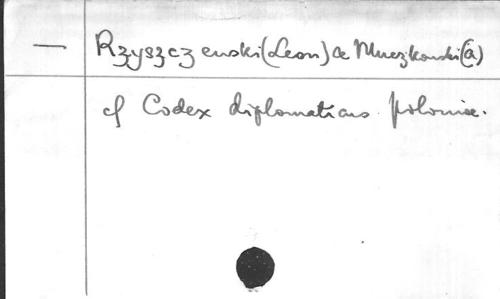 — Rzyszczewski (Leon) & Muczkowski (a)
cf Codex diplomaticus poloniæ.